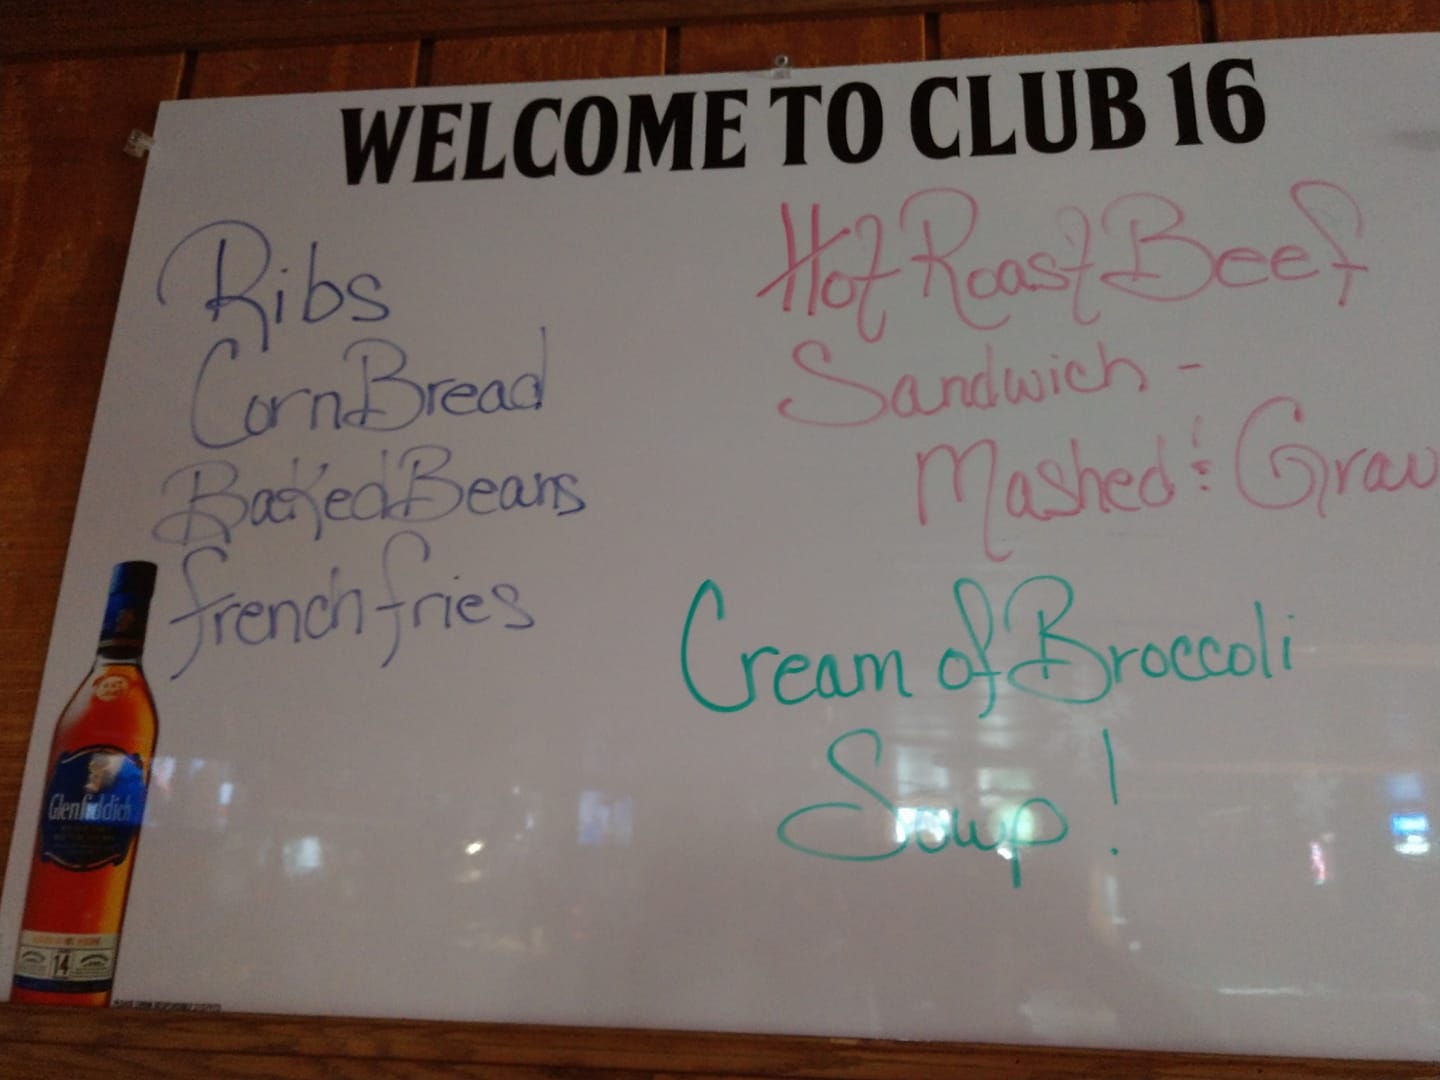 WELCOME TO CLUB 16
Ribs
Corn Bread
Baked Beans
french fries
Hot Roast Beef
Sandwich -
Mashed & Grav
Cream of Broccoli
Soup!
Glenfiddich
14